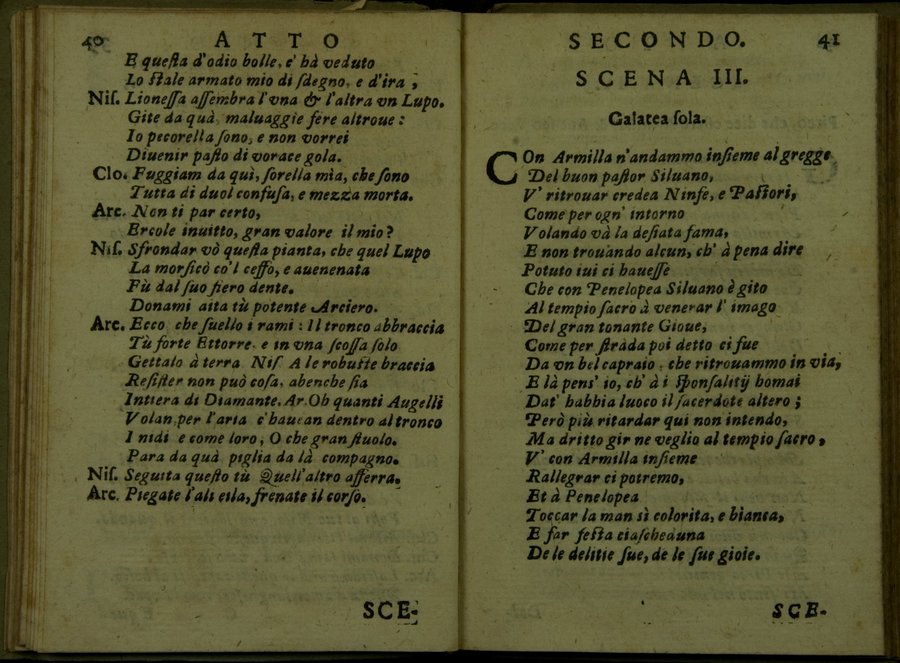 40 ATTO
E questa d'odio bolle, c' hà veduto
Lo stale armato mio di sdegno, e d'ira ;
Nis. Lionessa assembra l'vna & l'altra vn Lupo.
Gite da quà, maluaggie fere altroue :
Io pecorella sono, e non vorrei
Diuenir pasto di vorace gola.
Clo. Fuggiam da quì, sorella mia, che sono
Tutta di duol confusa, e mezza morta.
Arc. Non ti par certo,
Ercole inuitto, gran valore il mio?
Nis. Sfrondar vò questa pianta, che quel Lupo
La morsicò co'l ceffo, e auenenata
Fù dal suo fiero dente.
Donami aita tù potente Arciero.
Arc. Ecco che suello i rami : Il tronco abbraccia
Tù forte Ettorre, e in vna scossa solo
Gettalo à terra Nis. A le robuste braccia
Resister non può cosa, abenche sia
Intiera di Diamante. Ar. Oh quanti Augelli
Volan per l'aria c'haucan dentro al tronco
I nidi e come loro, O che gran stuolo.
Para da quà piglia da là compagno.
Nis. Seguita questo tù Quell'altro afferra.
Arc. Piegate l'ali eila, frenate il corso.
SCE-
SECONDO. 41
SCENA III.
Galatea sola.
COn Armilla n'andammo insieme al gregge
Del buon pastor Siluano,
V' ritrouar credea Ninfe, e Pastori,
Come per ogn' intorno
Volando và la desiata fama,
E non trouando alcun, ch' à pena dire
Potuto iui ci hauesse
Che con Penelopea Siluano è gito
Al tempio sacro à venerar l' imago
Del gran tonante Gioue,
Come per strada poi detto ci fue
Da vn bel capraio, che ritrouammo in via,
E là pens' io, ch' à i sponsalitij homai
Dat' habbia luoco il sacerdote altero ;
Però più ritardar qui non intendo,
Ma dritto gir ne veglio al tempio sacro,
V' con Armilla insieme
Rallegrar ci potremo,
Et à Penelopea
Toccar la man sì colorita, e bianca,
E far festa ciascheduna
De le delitie sue, de le sue gioie.
SCE-